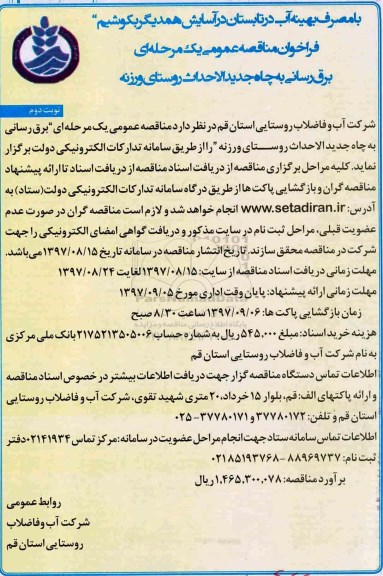 "با مصرف بهینه آب در تابستان در آسایش همدیگر بکوشیم"
فراخوان مناقصه عمومی یک مرحله‌ای
برق رسانی به چاه جدید الاحداث روستای ورزنه
نوبت دوم
شرکت آب و فاضلاب روستایی استان قم در نظر دارد مناقصه عمومی یک مرحله‌ای "برق رسانی
به چاه جدید الاحداث روستای ورزنه" را از طریق سامانه تدارکات الکترونیکی دولت برگزار
نماید. کلیه مراحل برگزاری مناقصه از دریافت اسناد مناقصه از دریافت اسناد تا ارائه پیشنهاد
مناقصه گران و بازگشایی پاکت ها از طریق درگاه سامانه تدارکات الکترونیکی دولت (ستاد) به
آدرس: www.setadiran.ir انجام خواهد شد و لازم است مناقصه گران در صورت عدم
عضویت قبلی، مراحل ثبت نام در سایت مذکور و دریافت گواهی امضای الکترونیکی را جهت
شرکت در مناقصه محقق سازند. تاریخ انتشار مناقصه در سامانه تاریخ ۱۳۹۷/۰۸/۱۵ می‌باشد.
مهلت زمانی دریافت اسناد مناقصه از سایت: ۱۳۹۷/۰۸/۱۵ لغایت ۱۳۹۷/۰۸/۲۴
مهلت زمانی ارائه پیشنهاد: پایان وقت اداری مورخ ۱۳۹۷/۰۹/۰۵
زمان بازگشایی پاکت ها: ۱۳۹۷/۰۹/۰۶ ساعت ۸/۳۰ صبح
هزینه خرید اسناد: مبلغ ۵۴۵,۰۰۰ ریال به شماره حساب ۲۱۷۵۲۱۳۵۰۵۰۰۶ بانک ملی مرکزی
به نام شرکت آب و فاضلاب روستایی استان قم
اطلاعات تماس دستگاه مناقصه گزار جهت دریافت اطلاعات بیشتر در خصوص اسناد مناقصه
و ارائه پاکتهای الف: قم، بلوار ۱۵ خرداد، ۲۰ متری شهید تقوی، شرکت آب و فاضلاب روستایی
استان قم و تلفن: ۳۷۷۸۰۱۷۲ و ۳۷۷۸۰۱۷۱-۰۲۵
اطلاعات تماس سامانه ستاد جهت انجام مراحل عضویت در سامانه: مرکز تماس ۰۲۱۴۱۹۳۴ دفتر
ثبت نام: ۸۸۹۶۹۷۳۷ -۰۲۱۸۵۱۹۳۷۶۸
برآورد مناقصه: ۱,۴۶۵,۳۰۰,۰۷۸ ریال
روابط عمومی
شرکت آب و فاضلاب
روستایی استان قم